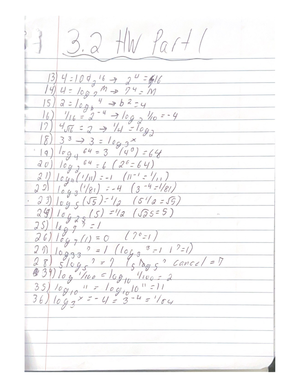 3.2 HW Part 1
13) 4 = log₂16 → 2⁴ = 16
14) 4 = log₇M → 7⁴ = M
15) 2 = log_b 4 → b² = 4
16) 1/16 = 2⁻⁴ → log₂ 1/16 = -4
17) ⁴√16 = 2 → 1/4 = log
18) 3³ → 3 = log₃ x
19) log₄ 64 = 3 (4³) = 64
20) log₂ 64 = 6 (2⁶ = 64)
21) log₁₁(1/11) = -1 (11⁻¹ = 1/11)
22) log₃(1/81) = -4 (3⁻⁴ = 1/81)
23) log₅(√5) = 1/2 (5^1/2 = √5)
24) log₂₅(5) = 1/2 (√25 = 5)
25) log₇ ⁷ = 1
26) log₇(1) = 0 (7⁰ = 1)
cancel = 7
34) log 1/100 = log₁₀ 1/100 = 2
35) log₁₀ ¹¹ = log₁₀ 10¹¹ = 11
36) log₃ x = -4 = 3⁻⁴ = 1/81